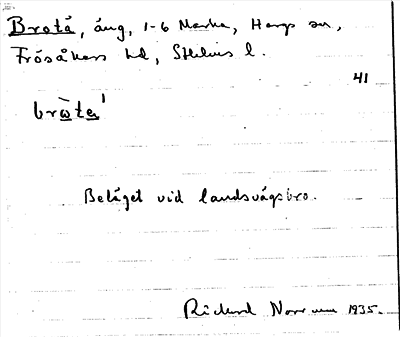 Brotä, äng, 1-6 Marka, Hargs sn,
Frösåkers hd, Sthlms l.
41
bròta'
Beläget vid landsvägsbro.
Rickard Norrman 1935.